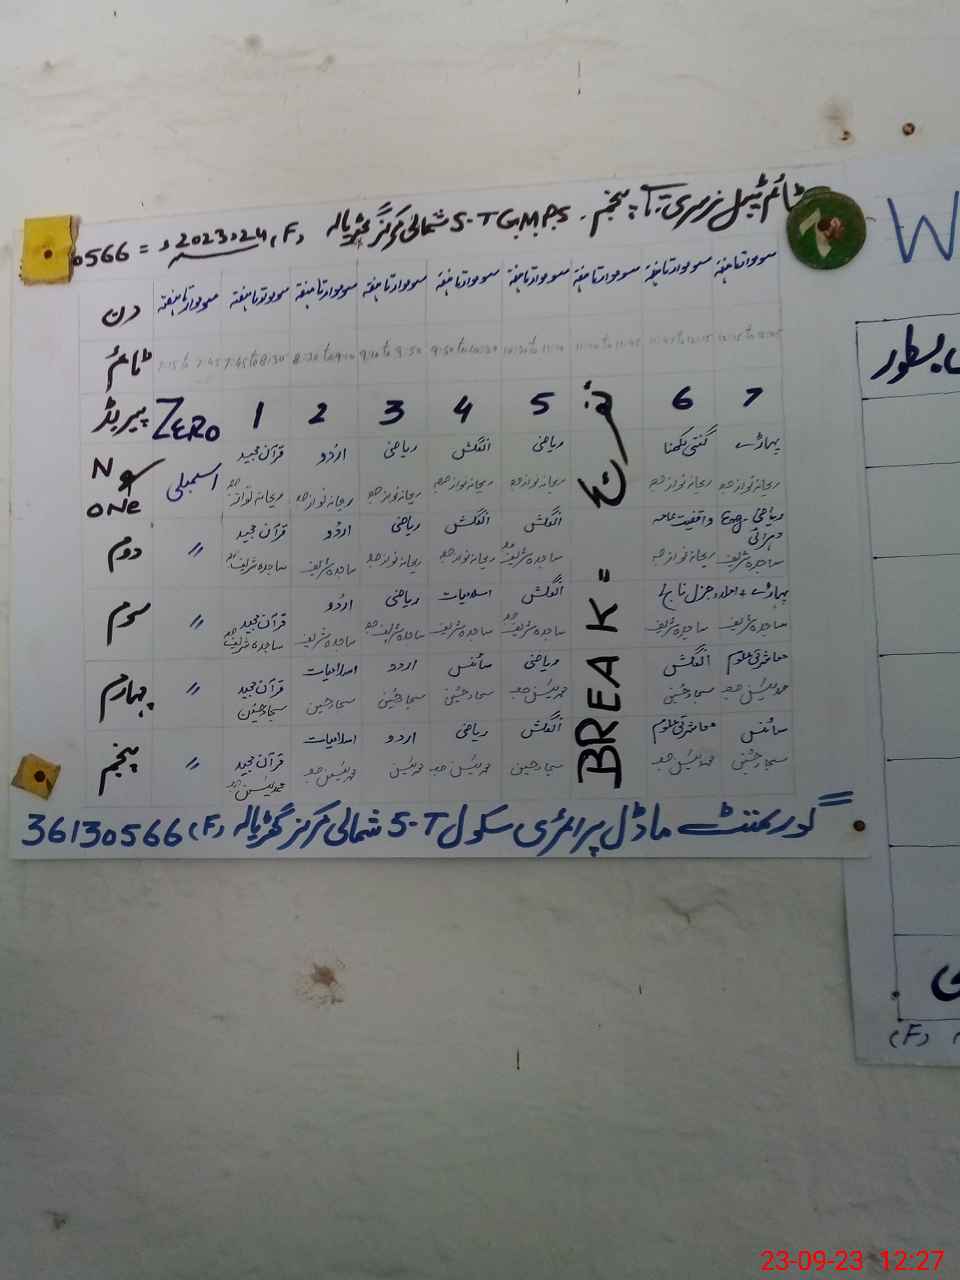 ٹائم ٹیبل نرسری تا پنجم . G.M.P.S 5-T شمالی مرکز گڑیالہ (F) 2023.24ء = 0566
دن سوموار تا ہفتہ سوموار تا ہفتہ سوموار تا ہفتہ سوموار تا ہفتہ سوموار تا ہفتہ سوموار تا ہفتہ سوموار تا ہفتہ سوموار تا ہفتہ سوموار تا ہفتہ
ٹائم 7:15 to 7:45 7:45 to 8:30 8:30 to 9:10 9:10 to 9:50 9:50 to 10:30 10:30 to 11:10 11:10 to 11:45
پیریڈ ZERO 1 2 3 4 5 تفریح 6 7
N & ONE اسمبلی قرآن مجید اردو ریاضی انگلش ریاضی گنتی لکھنا پہاڑے
ریحانہ نواز ریحانہ نواز ریحانہ نواز ریحانہ نواز ریحانہ نواز ریحانہ نواز ریحانہ نواز
دوم 〃 قرآن مجید اردو ریاضی انگلش انگلش واقفیت عامہ ریاضی Eng دہرائی
ساجدہ شریف ساجدہ شریف ریحانہ نواز ریحانہ نواز ساجدہ شریف ریحانہ نواز ساجدہ شریف
سوم 〃 قرآن مجید اردو ریاضی اسلامیات انگلش جنرل نالج پہاڑے + املاء
ساجدہ شریف ساجدہ شریف ساجدہ شریف ساجدہ شریف ساجدہ شریف ساجدہ شریف ساجدہ شریف
چہارم 〃 قرآن مجید اسلامیات اردو سائنس ریاضی انگلش معاشرتی علوم
سجاد حسین سجاد حسین سجاد حسین سجاد حسین محمد یٰسین سجاد حسین محمد یٰسین
پنجم 〃 قرآن مجید اسلامیات اردو ریاضی انگلش معاشرتی علوم سائنس
محمد یٰسین محمد یٰسین محمد یٰسین محمد یٰسین سجاد حسین محمد یٰسین سجاد حسین
BREAK =
گورنمنٹ ماڈل پرائمری سکول 5-T شمالی مرکز گڑیالہ (F) 36130566
W
بسطور
(F)
23-09-23 12:27